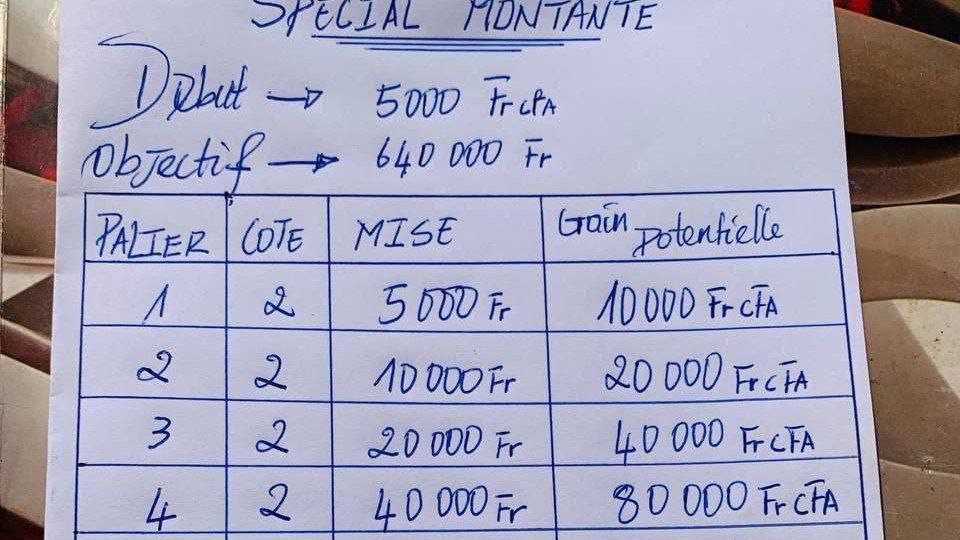 SPECIAL MONTANTE
Début → 5000 Fr CFA
Objectif → 640 000 Fr
PALIER COTE MISE Gain Potentielle
1 2 5000 Fr 10 000 Fr CFA
2 2 10 000 Fr 20 000 Fr CFA
3 2 20 000 Fr 40 000 Fr CFA
4 2 40 000 Fr 80 000 Fr CFA